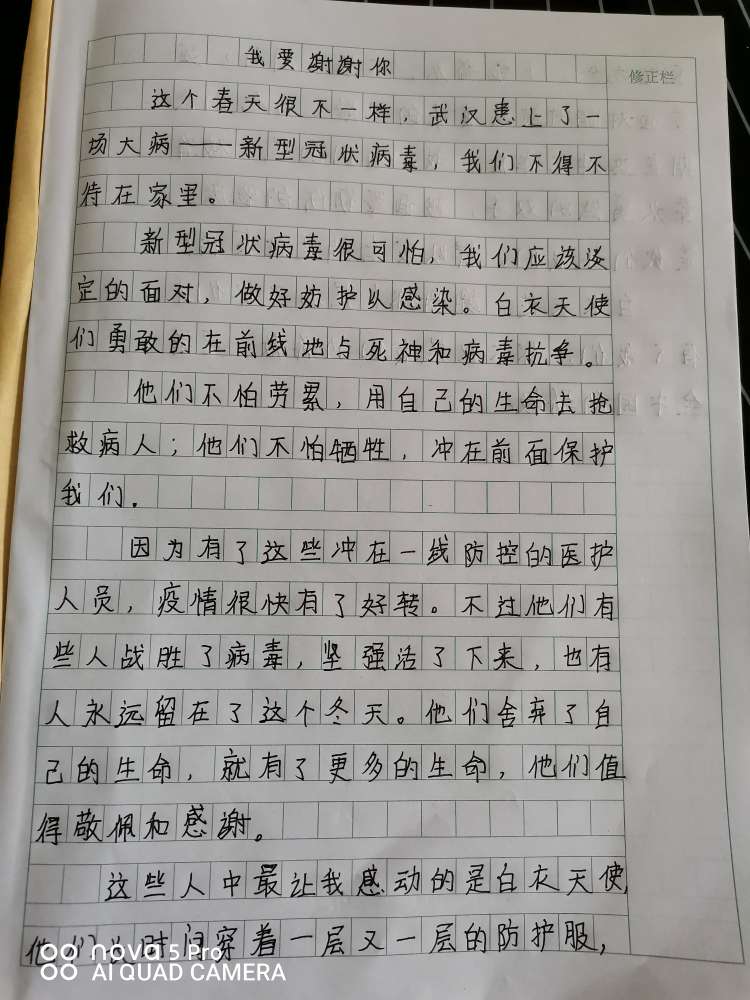 我要谢谢你
修正栏
这个春天很不一样，武汉患上了一
场大病——新型冠状病毒，我们不得不
待在家里。
新型冠状病毒很可怕，我们应该淡
定的面对，做好妨护以感染。白衣天使
们勇敢的在前线地与死神和病毒抗争。
他们不怕劳累，用自己的生命去抢
救病人；他们不怕牺牲，冲在前面保护
我们．
因为有了这些冲在一线防控的医护
人员，疫情很快有了好转。不过他们有
些人战胜了病毒，坚强活了下来，也有
人永远留在了这个冬天。他们舍弃了自
己的生命，就有了更多的生命，他们值
得敬佩和感谢。
这些人中最让我感动的是白衣天使，
他们 时间穿着一层又一层的防护服，
nova 5 Pro
AI QUAD CAMERA